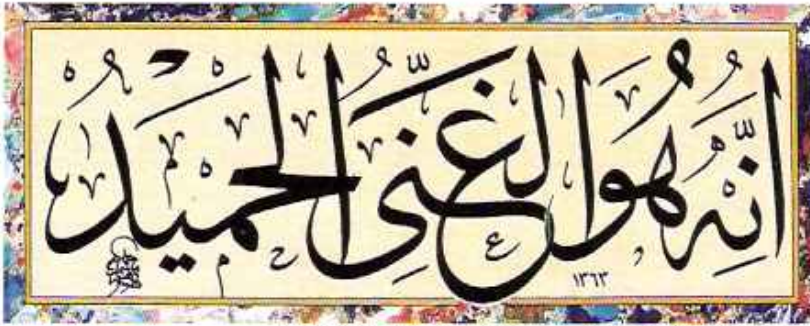 انّه هُوَ الغنىّ الحميدُ
١٣٦٣